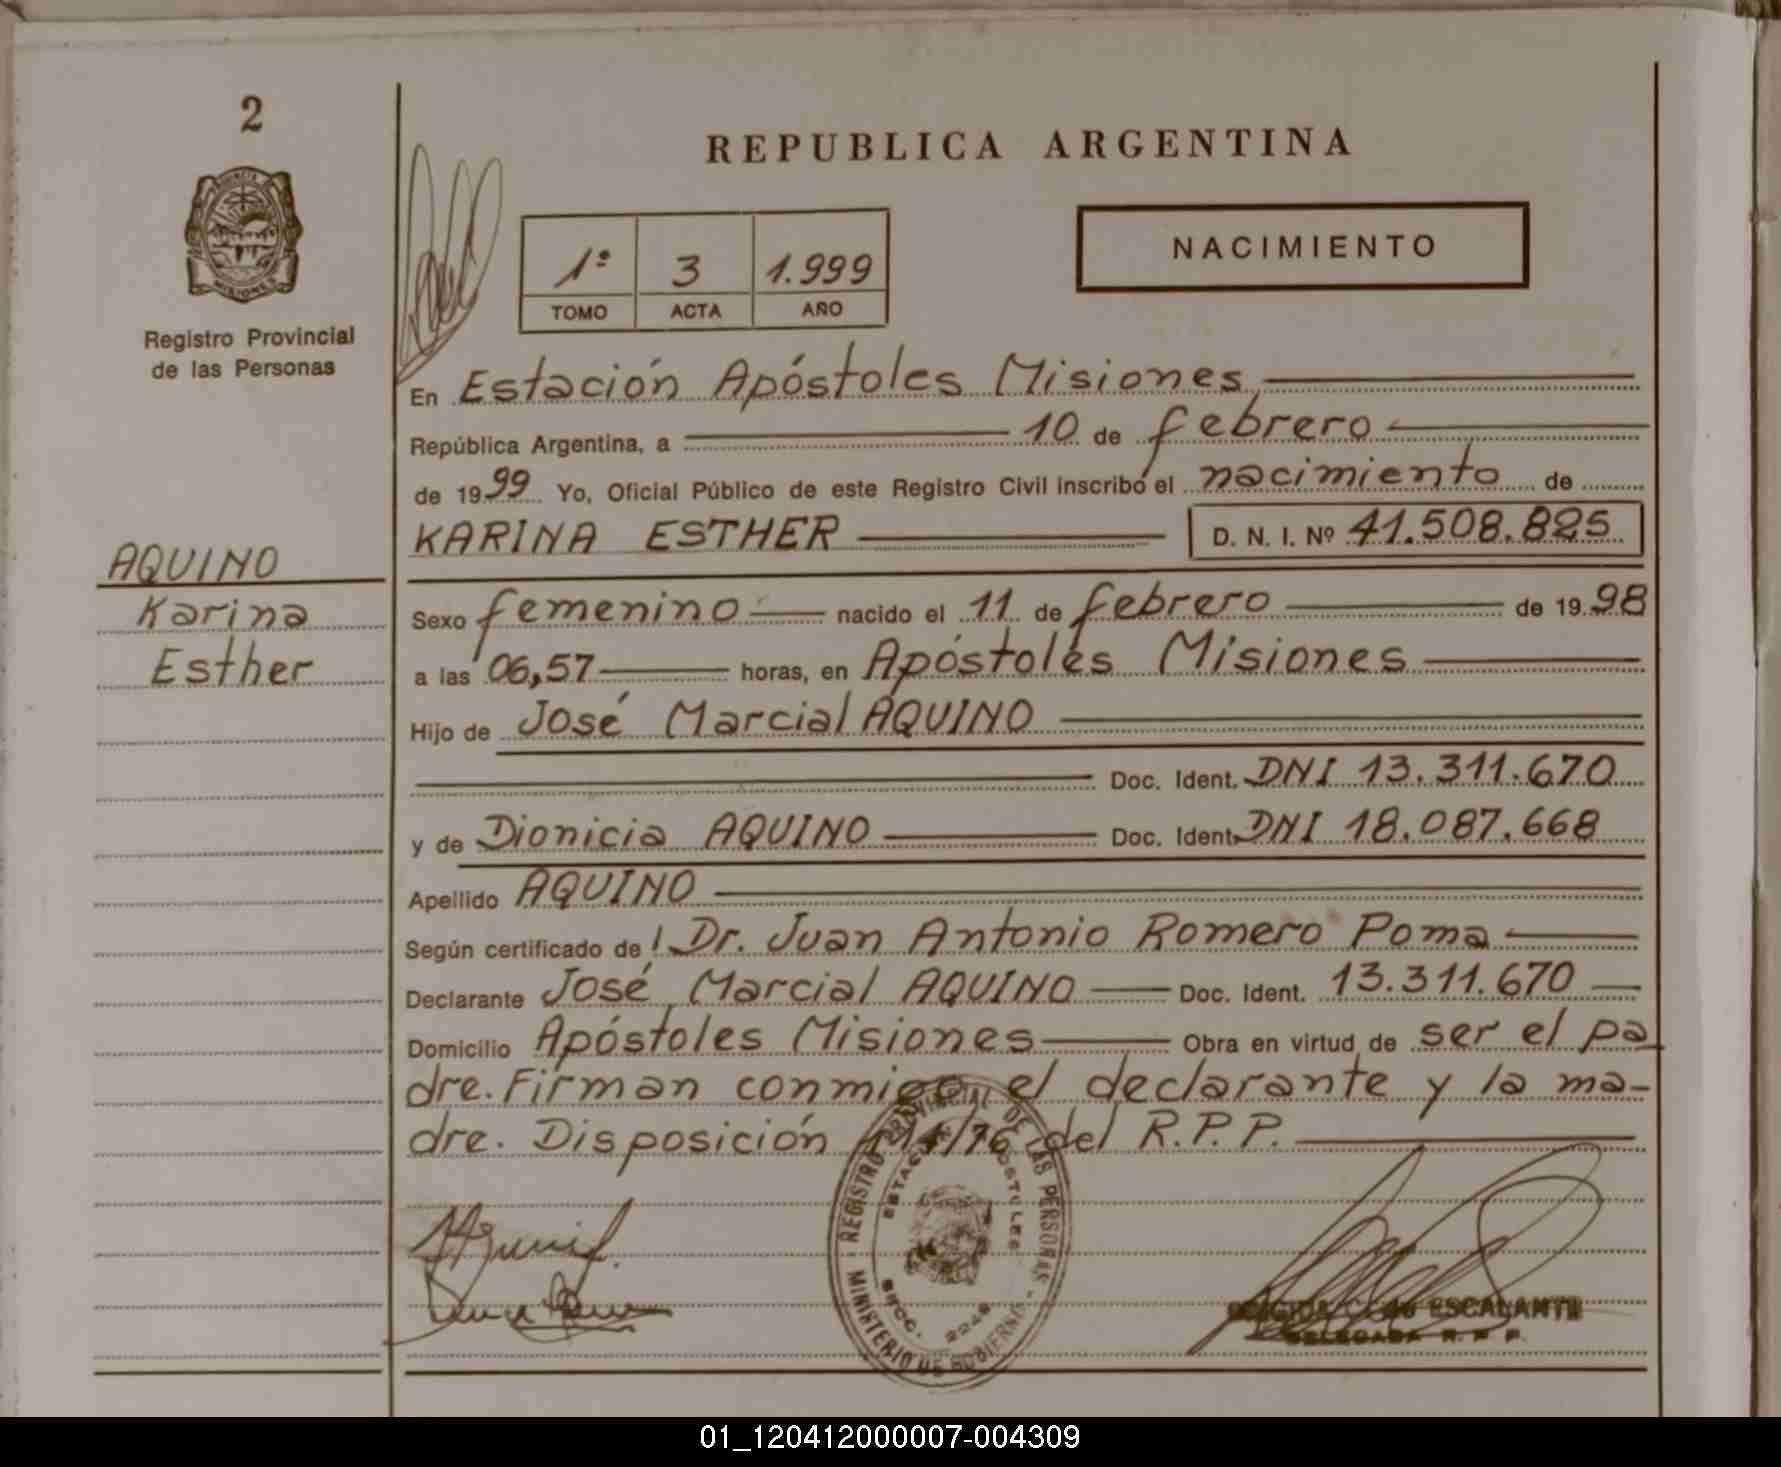 2
REPUBLICA ARGENTINA
PROVINCIA DE
MISIONES
Registro Provincial
de las Personas
1º 3 1.999
TOMO ACTA AÑO
NACIMIENTO
En Estación Apóstoles Misiones
República Argentina, a 10 de febrero
de 1999 Yo, Oficial Público de este Registro Civil inscribo el nacimiento de
KARINA ESTHER D. N. I. Nº 41.508.825
AQUINO
Karina
Esther
Sexo femenino nacido el 11 de febrero de 1998
a las 06,57 horas, en Apóstoles Misiones
Hijo de José Marcial AQUINO
Doc. Ident. DNI 13.311.670
y de Dionicia AQUINO Doc. Ident. DNI 18.087.668
Apellido AQUINO
Según certificado de l Dr. Juan Antonio Romero Poma
Declarante José Marcial AQUINO Doc. Ident. 13.311.670
Domicilio Apóstoles Misiones Obra en virtud de ser el pa
dre. Firman conmigo el declarante y la ma-
dre. Disposición /76 del R.P.P.
REGISTRO PROVINCIAL DE LAS PERSONAS
ESTACION APOSTOLES
SECC. 2248
MINISTERIO DE GOBIERNO
ESCALANTE
DELEGADA R. P. P.
01_120412000007-004309